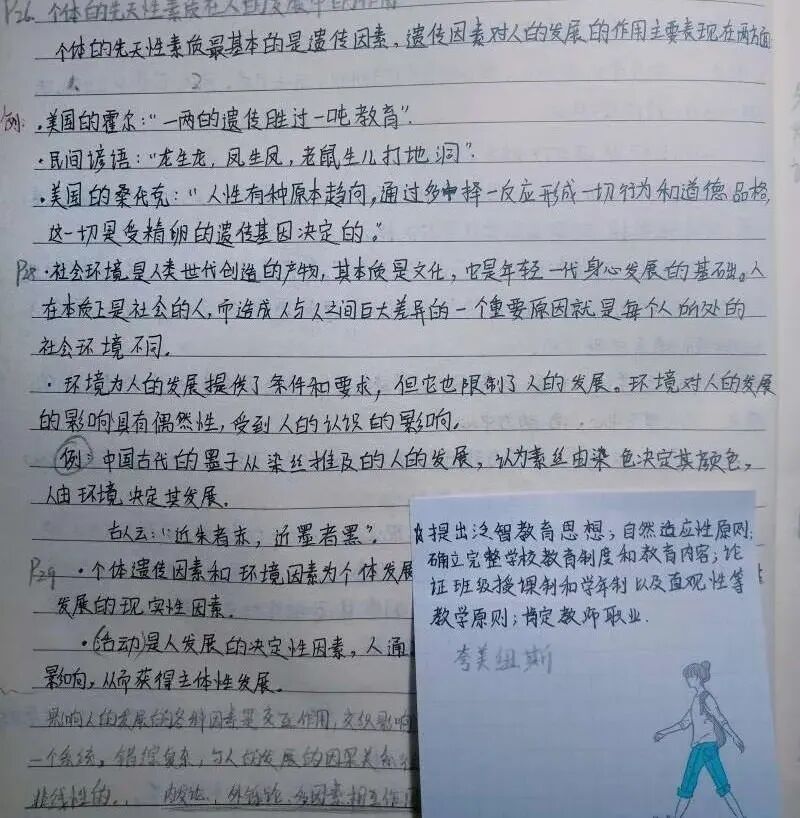 P26 个体的先天性素质在人的发展中的作用
个体的先天性素质最基本的是遗传因素,遗传因素对人的发展的作用主要表现在两方面
1. 2
例:·美国的霍尔:“一两的遗传胜过一吨教育”.
·民间谚语:“龙生龙,凤生凤,老鼠生儿打地洞”.
·美国的桑代克:“人性有种原本趋向,通过 择一反应形成一切行为和道德品格,
这一切是受精卵的遗传基因决定的。”
P28 ·社会环境是人类世代创造的产物,其本质是文化,它是年轻一代身心发展的基础。人
在本质上是社会的人,而造成人与人之间巨大差异的一个重要原因就是每个人所处的
社会环境不同.
·环境为人的发展提供了条件和要求,但它也限制了人的发展。环境对人的发展
的影响具有偶然性,受到人的认识的影响.
例:中国古代的墨子从染丝推及的人的发展,认为素丝由染色决定其颜色,
人由环境决定其发展.
古人云:“近朱者赤,近墨者黑”.
P29 ·个体遗传因素和环境因素为个体发展
发展的现实性因素.
·(活动)是人发展的决定性因素,人通
影响,从而获得主体性发展.
影响人的发展的各种因素是交互作用,交织影响
一个系统。错综复杂,与人的发展的因果关系
非线性的.. 内发论、外铄论、多因素相互作用
提出泛智教育思想;自然适应性原则;
确立完整学校教育制度和教育内容;论
证班级授课制和学年制以及直观性等
教学原则;肯定教师职业.
夸美纽斯